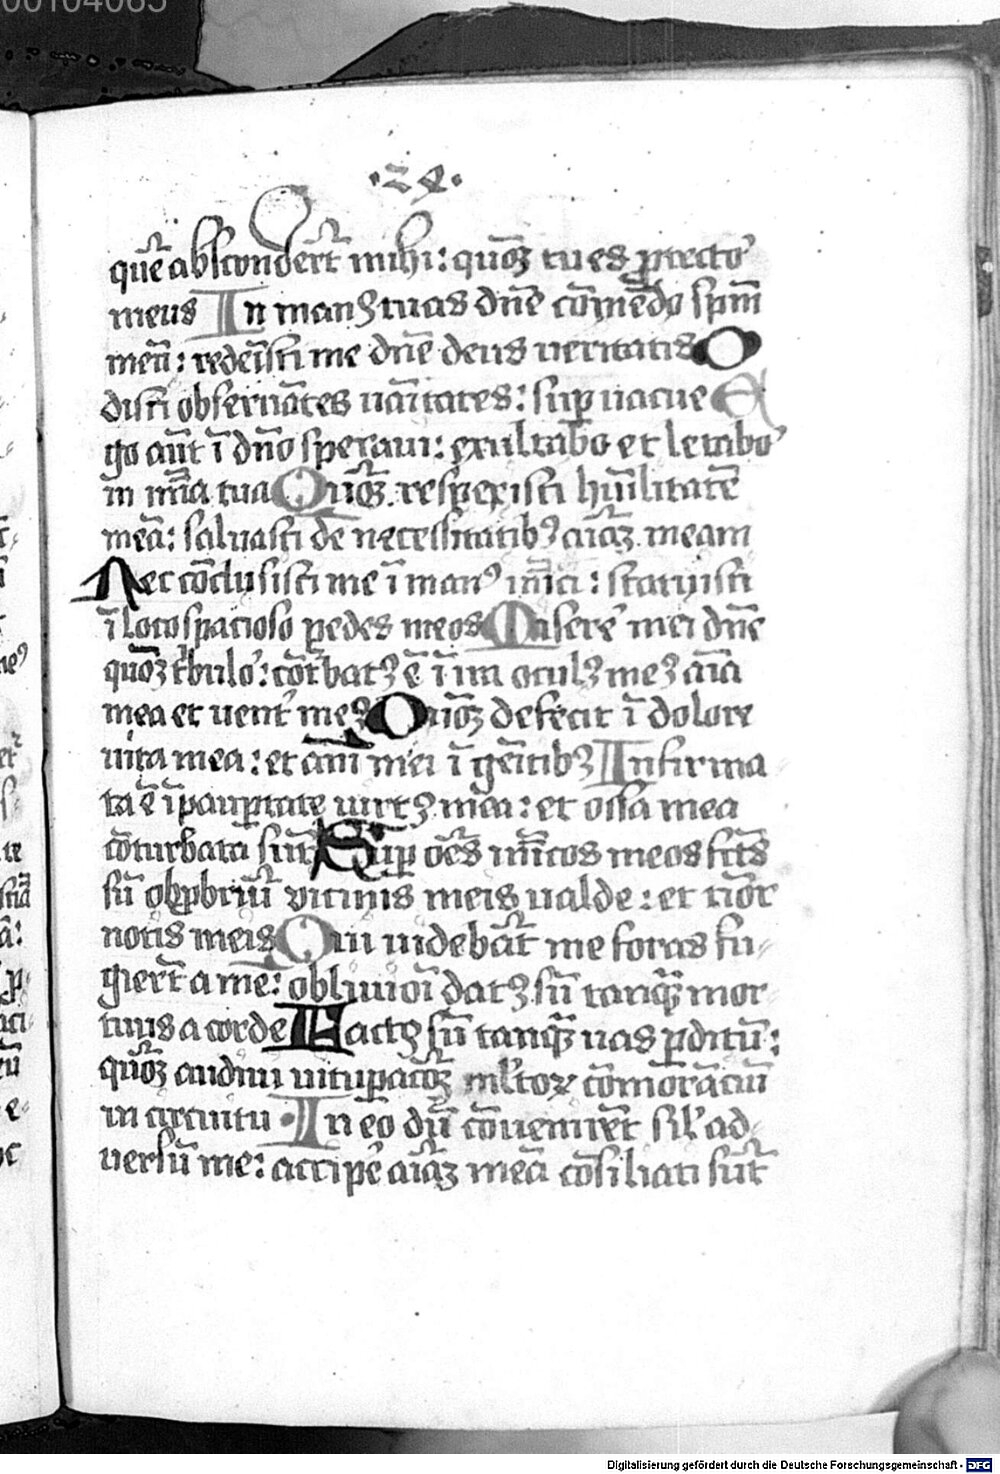 00104065
·24·
quē absconderūt mihi: quoꝫ tu es ꝓtector
meus In manꝰ tuas dn̄e cōmēdo spm̄
meū: redemisti me dn̄e deus veritatis O
disti obseruātes uāitates: suꝑ uacue E
go aūt ī dn̄o speraui: exultabo et letabor
in mīa tua Quoꝫ respexisti hūilitatē
meā: saluasti de necessitatibꝰ aīaꝫ meam
Nec cōclusisti me ī manꝰ inīci: statuisti
ī loco spacioso pedes meos Miserere mei dn̄e
quoꝫ tribulor: cōtbatꝰ ē ī ira oculꝰ meꝰ aīa
mea et uent meꝰ Quoꝫ defecit ī dolore
uita mea: et ānī mei ī gēitibꝰ Infirma
ta ē ī paupertate uirtꝰ mea: et ossa mea
cōturbata sūt Suꝑ oēs inīicos meos fc̄s
sū obꝓbriū vicinis meis ualde: et tīor
notis meis Qui uidebāt me foras fu
gierūt a me: obliuioī datꝰ sū tanqꝫ mor
tuus a corde Factꝰ sū tanqꝫ uas ꝑditū:
quoꝫ audiui uituꝑacoꝫ mltoꝝ cōmorāciū
in circuitu · In eo dū cōuenirēt sil ad
uersū me: accipe aīaꝫ meā cōsiliati sūt
Digitalisierung gefördert durch die Deutsche Forschungsgemeinschaft - DFG